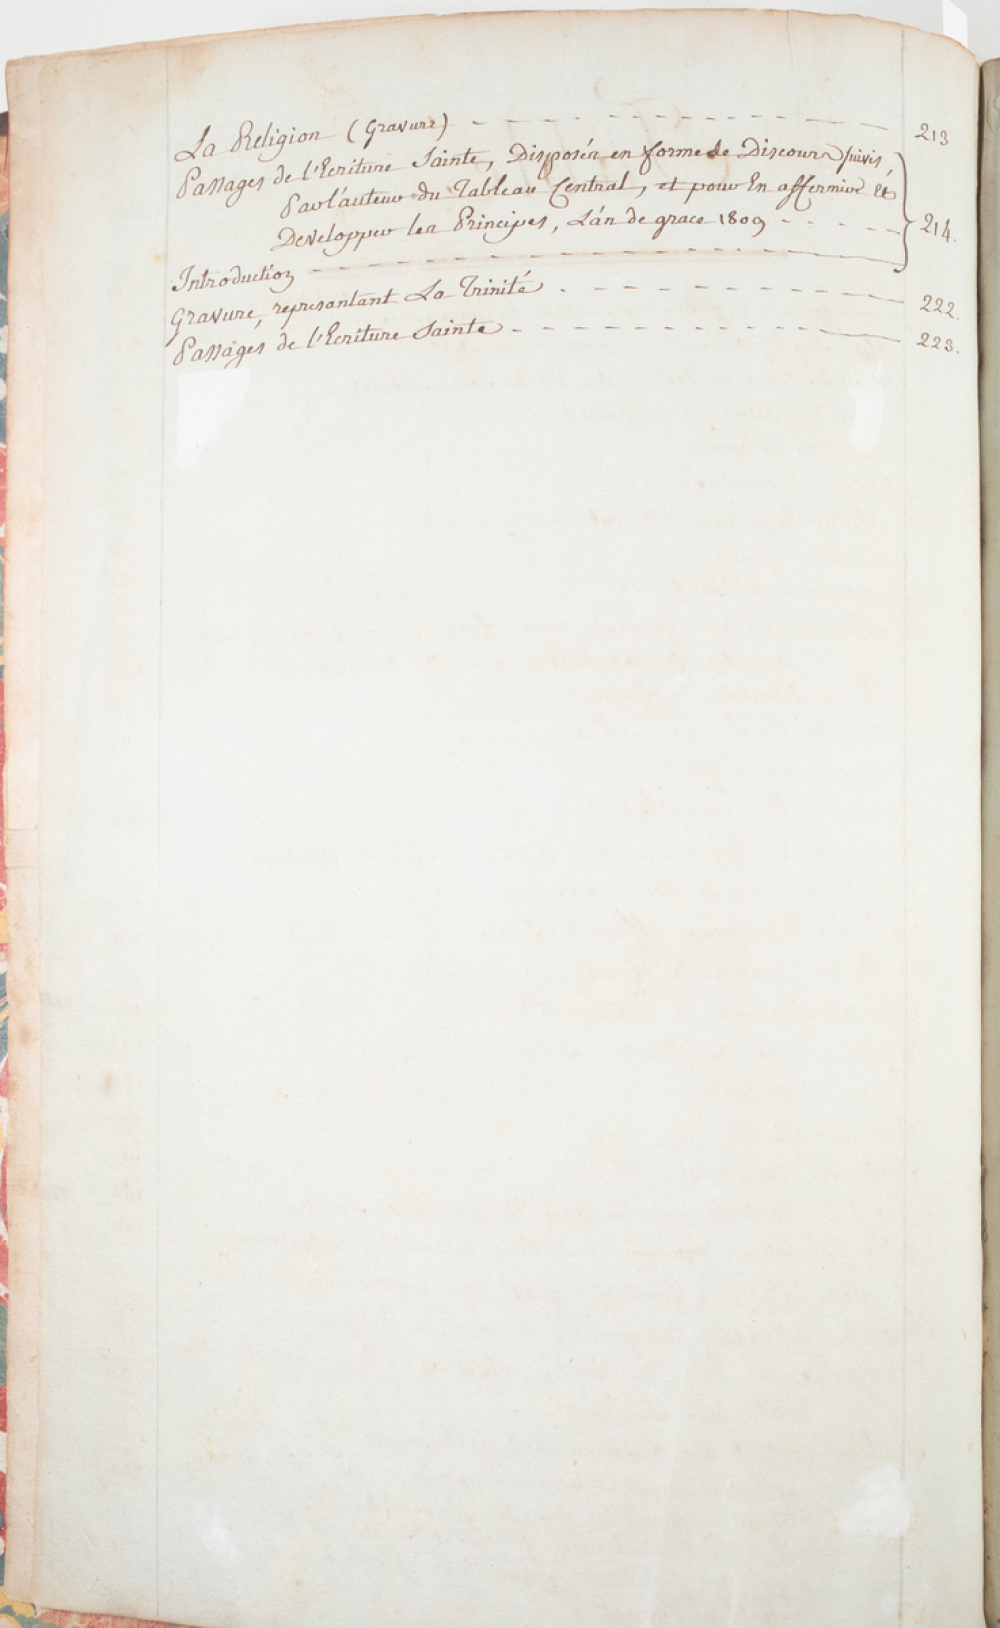 La Religion (Gravure) - - - - - - - - - - 213
Passages de l'Ecriture Sainte, Disposés en forme de Discours suivis,
Par l'áuteur du Tableau Central, et pour En affermir Et
Developper les Principes, L'án de grace 1809 - - - - 214.
Introduction - - - - - - - - - -
Gravure, represantant La Trinité - - - - - - - - 222.
Passages de l'Ecriture Sainte - - - - - - - - - 223.